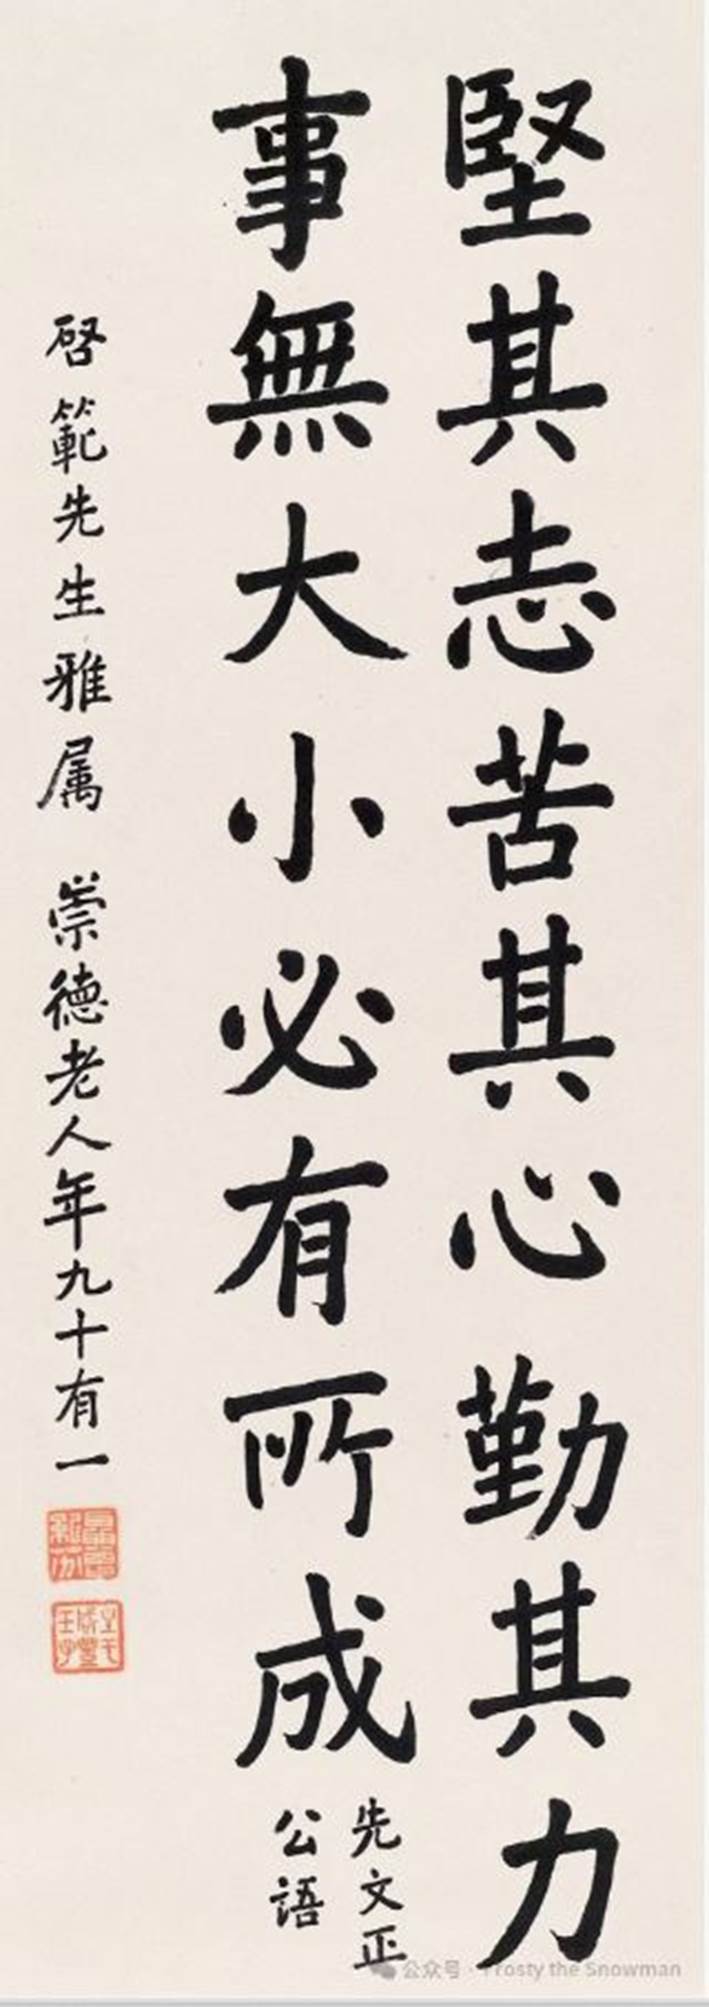 堅其志苦其心勤其力
事無大小必有所成
先文正
公語
啓範先生雅属 崇德老人年九十有一
公众号 · Frosty the Snowman